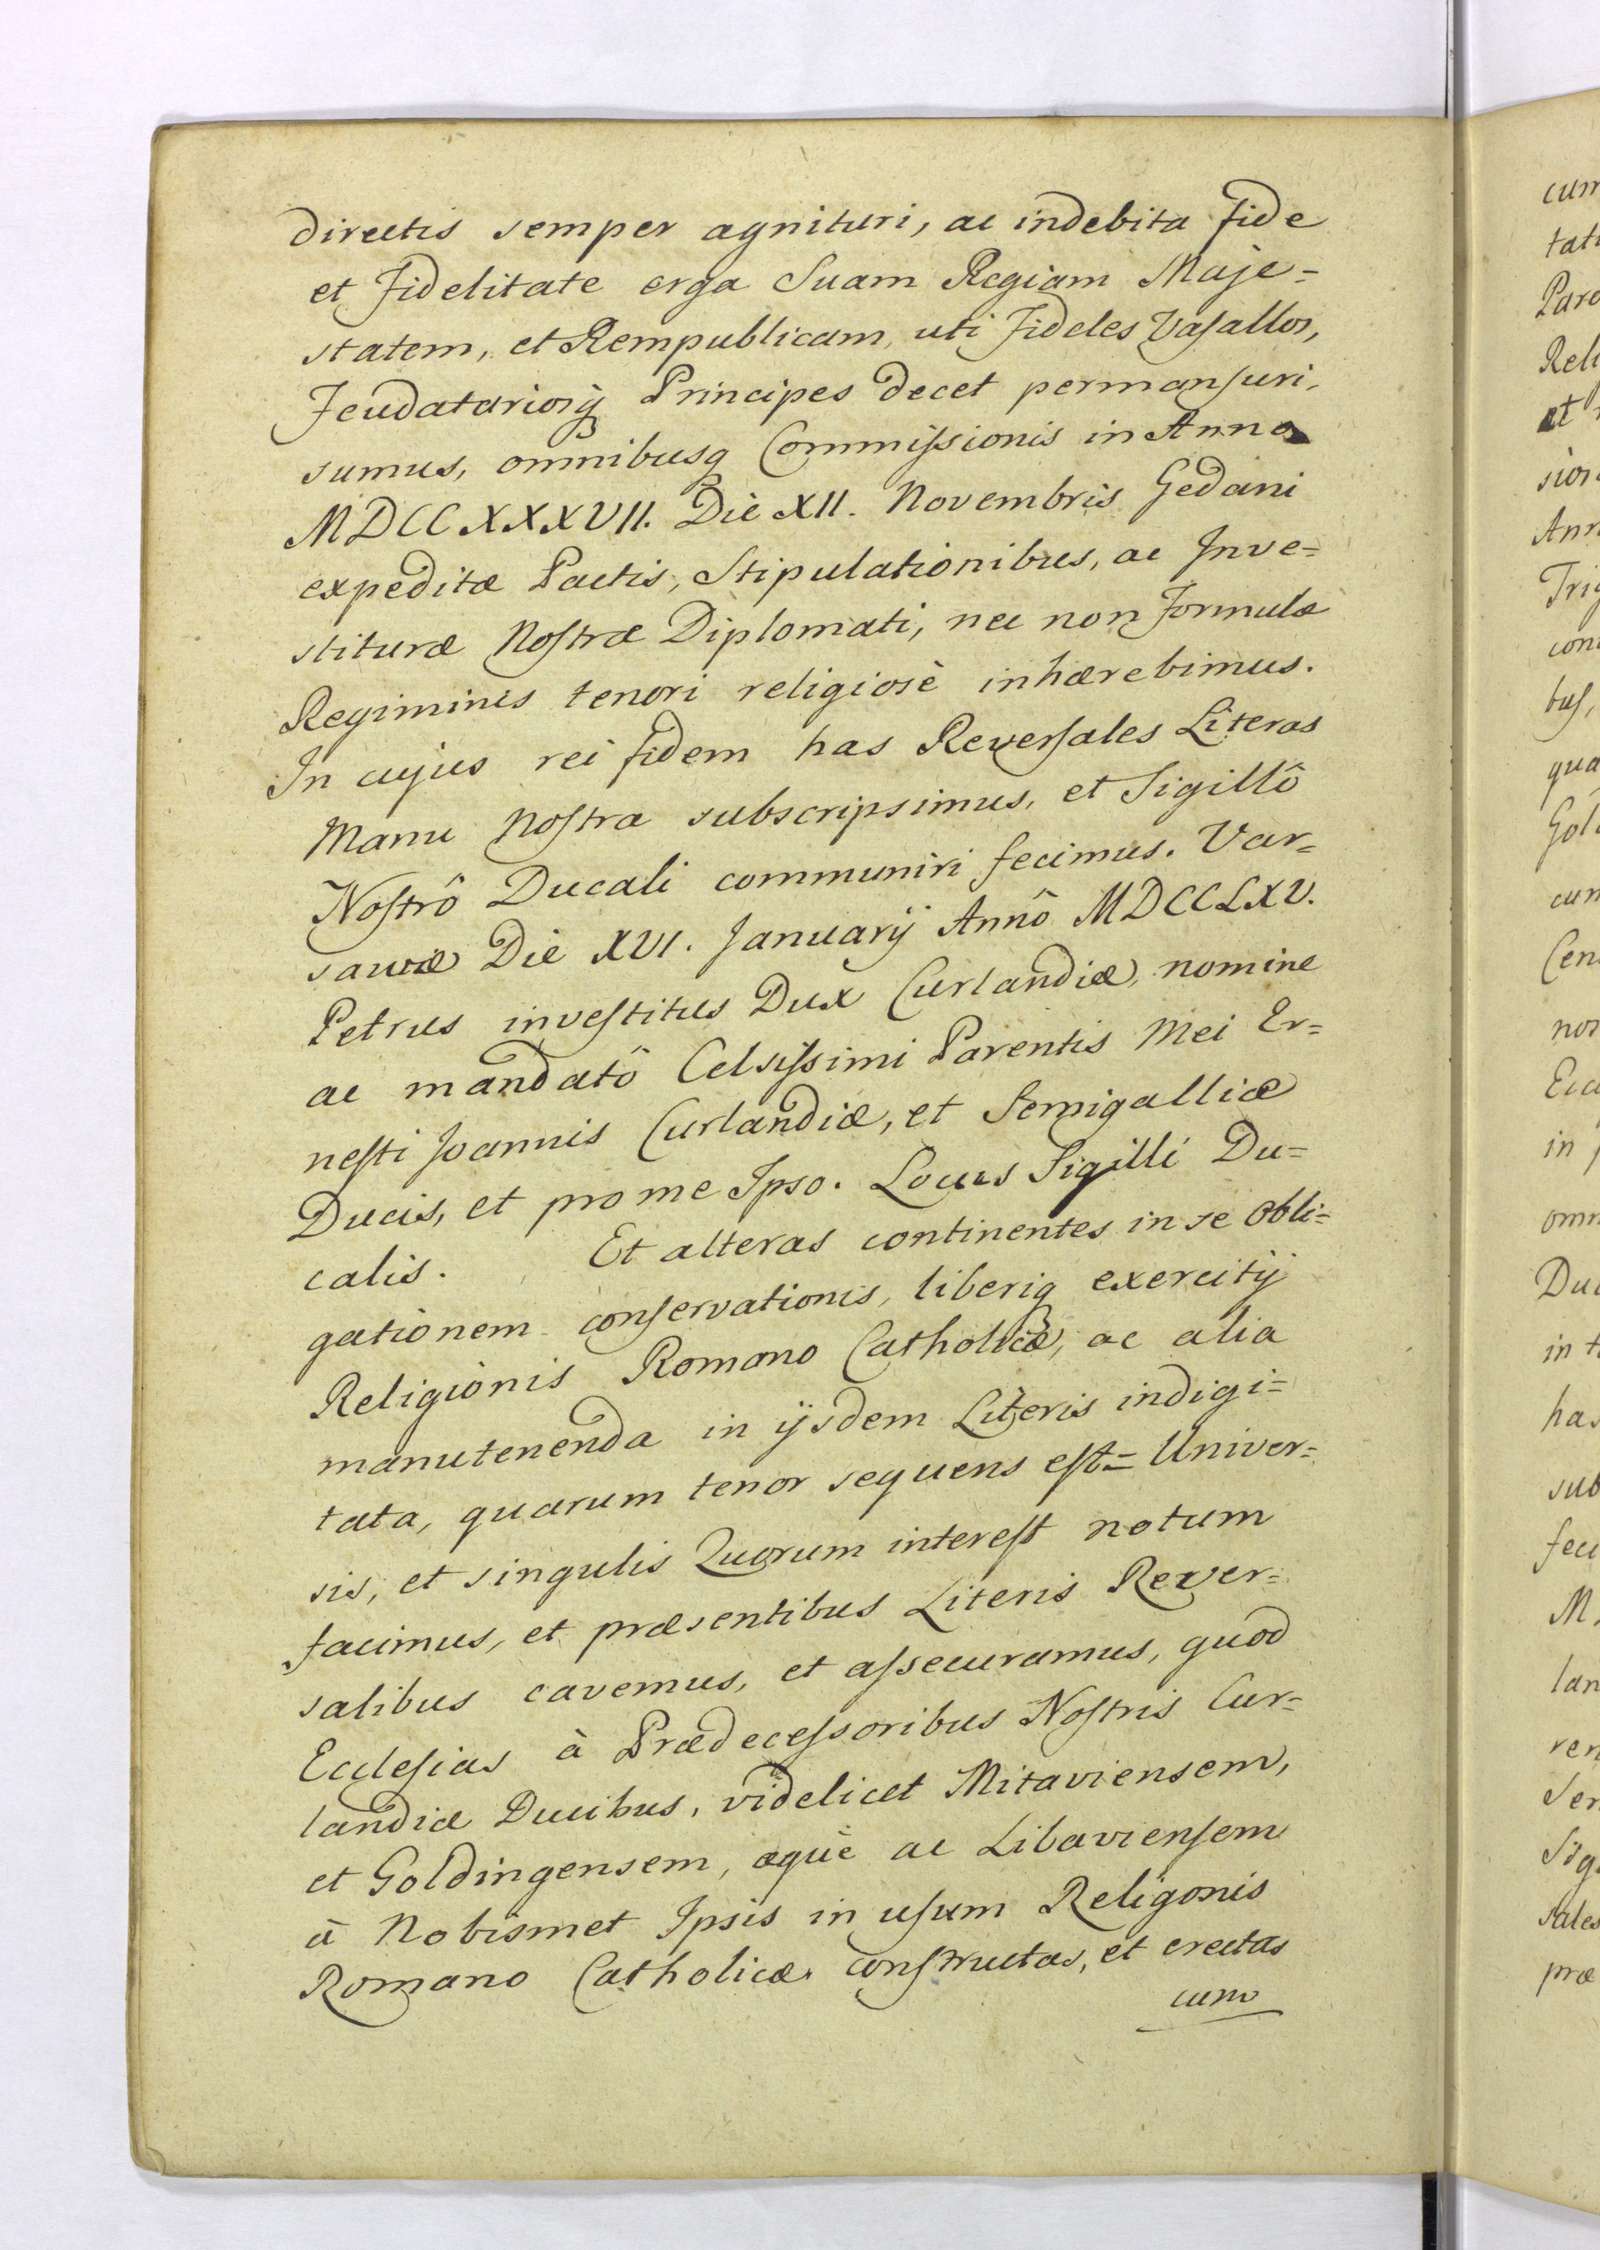 directis semper agnituri, ac indebita fide
et Fidelitate erga Suam Regiam Maje=
statem, et Rempublicam, uti Fideles Vasallos,
Feudatariosq; Principes decet permansuri,
sumus, omnibusq; Commissionis in Anno
MDCCXXXVII. Die XII. Novembris Gedani
expeditæ Pactis, Stipulationibus, ac Inve=
stituræ Nostræ Diplomati, nec non Formulæ
Regiminis tenori religiosè inhærebimus.
In cujus rei fidem has Reversales Literas
Manu Nostra subscripsimus, et Sigillô
Nostrô Ducali communiri fecimus. Var=
saviæ Die XVI. Januarij Annô MDCCLXV.
Petrus investitus Dux Curlandiæ, nomine
ac mandatô Celsissimi Parentis Mei Er=
nesti Joannis Curlandiæ, et Semigalliæ
Ducis, et pro me Ipso. Locus Sigilli Du=
calis. Et alteras continentes in se obli=
gationem conservationis, liberiq; exercitij
Religionis Romano Catholicæ, ac alia
manutenenda in ijsdem Literis indigi=
tata, quarum tenor sequens est= Univer=
sis, et singulis Quorum interest notum
facimus, et præsentibus Literis Rever=
salibus cavemus, et assecuramus, quod
Ecclesias à Prædecessoribus Nostris Cur=
landiæ Ducibus, videlicet Mitaviensem,
et Goldingensem, æquè ac Libaviensem
à Nobismet Ipsis in usum Religonis
Romano Catholicæ constructas, et erectas
cum